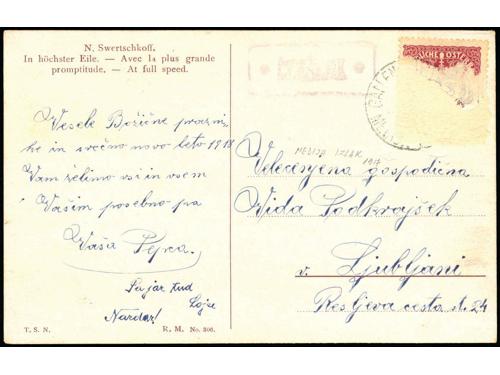 N. Swertschkoff.
In höchster Eile. — Avec la plus grande
promptitude. — At full speed.
Vesele Božične prazni-
ke in srečno novo leto 1918
Vam želimo vsi in vsem
Vašim posebno pa
Vaša Pepca.
Nardar!
T. S. N. R. M. No. 306.
SCHE POST
MEDIJA IZLAK
1917
Velecenjena gospodična
Vida Podkrajšek
v. Ljubljani
Resljeva cesta št. 24